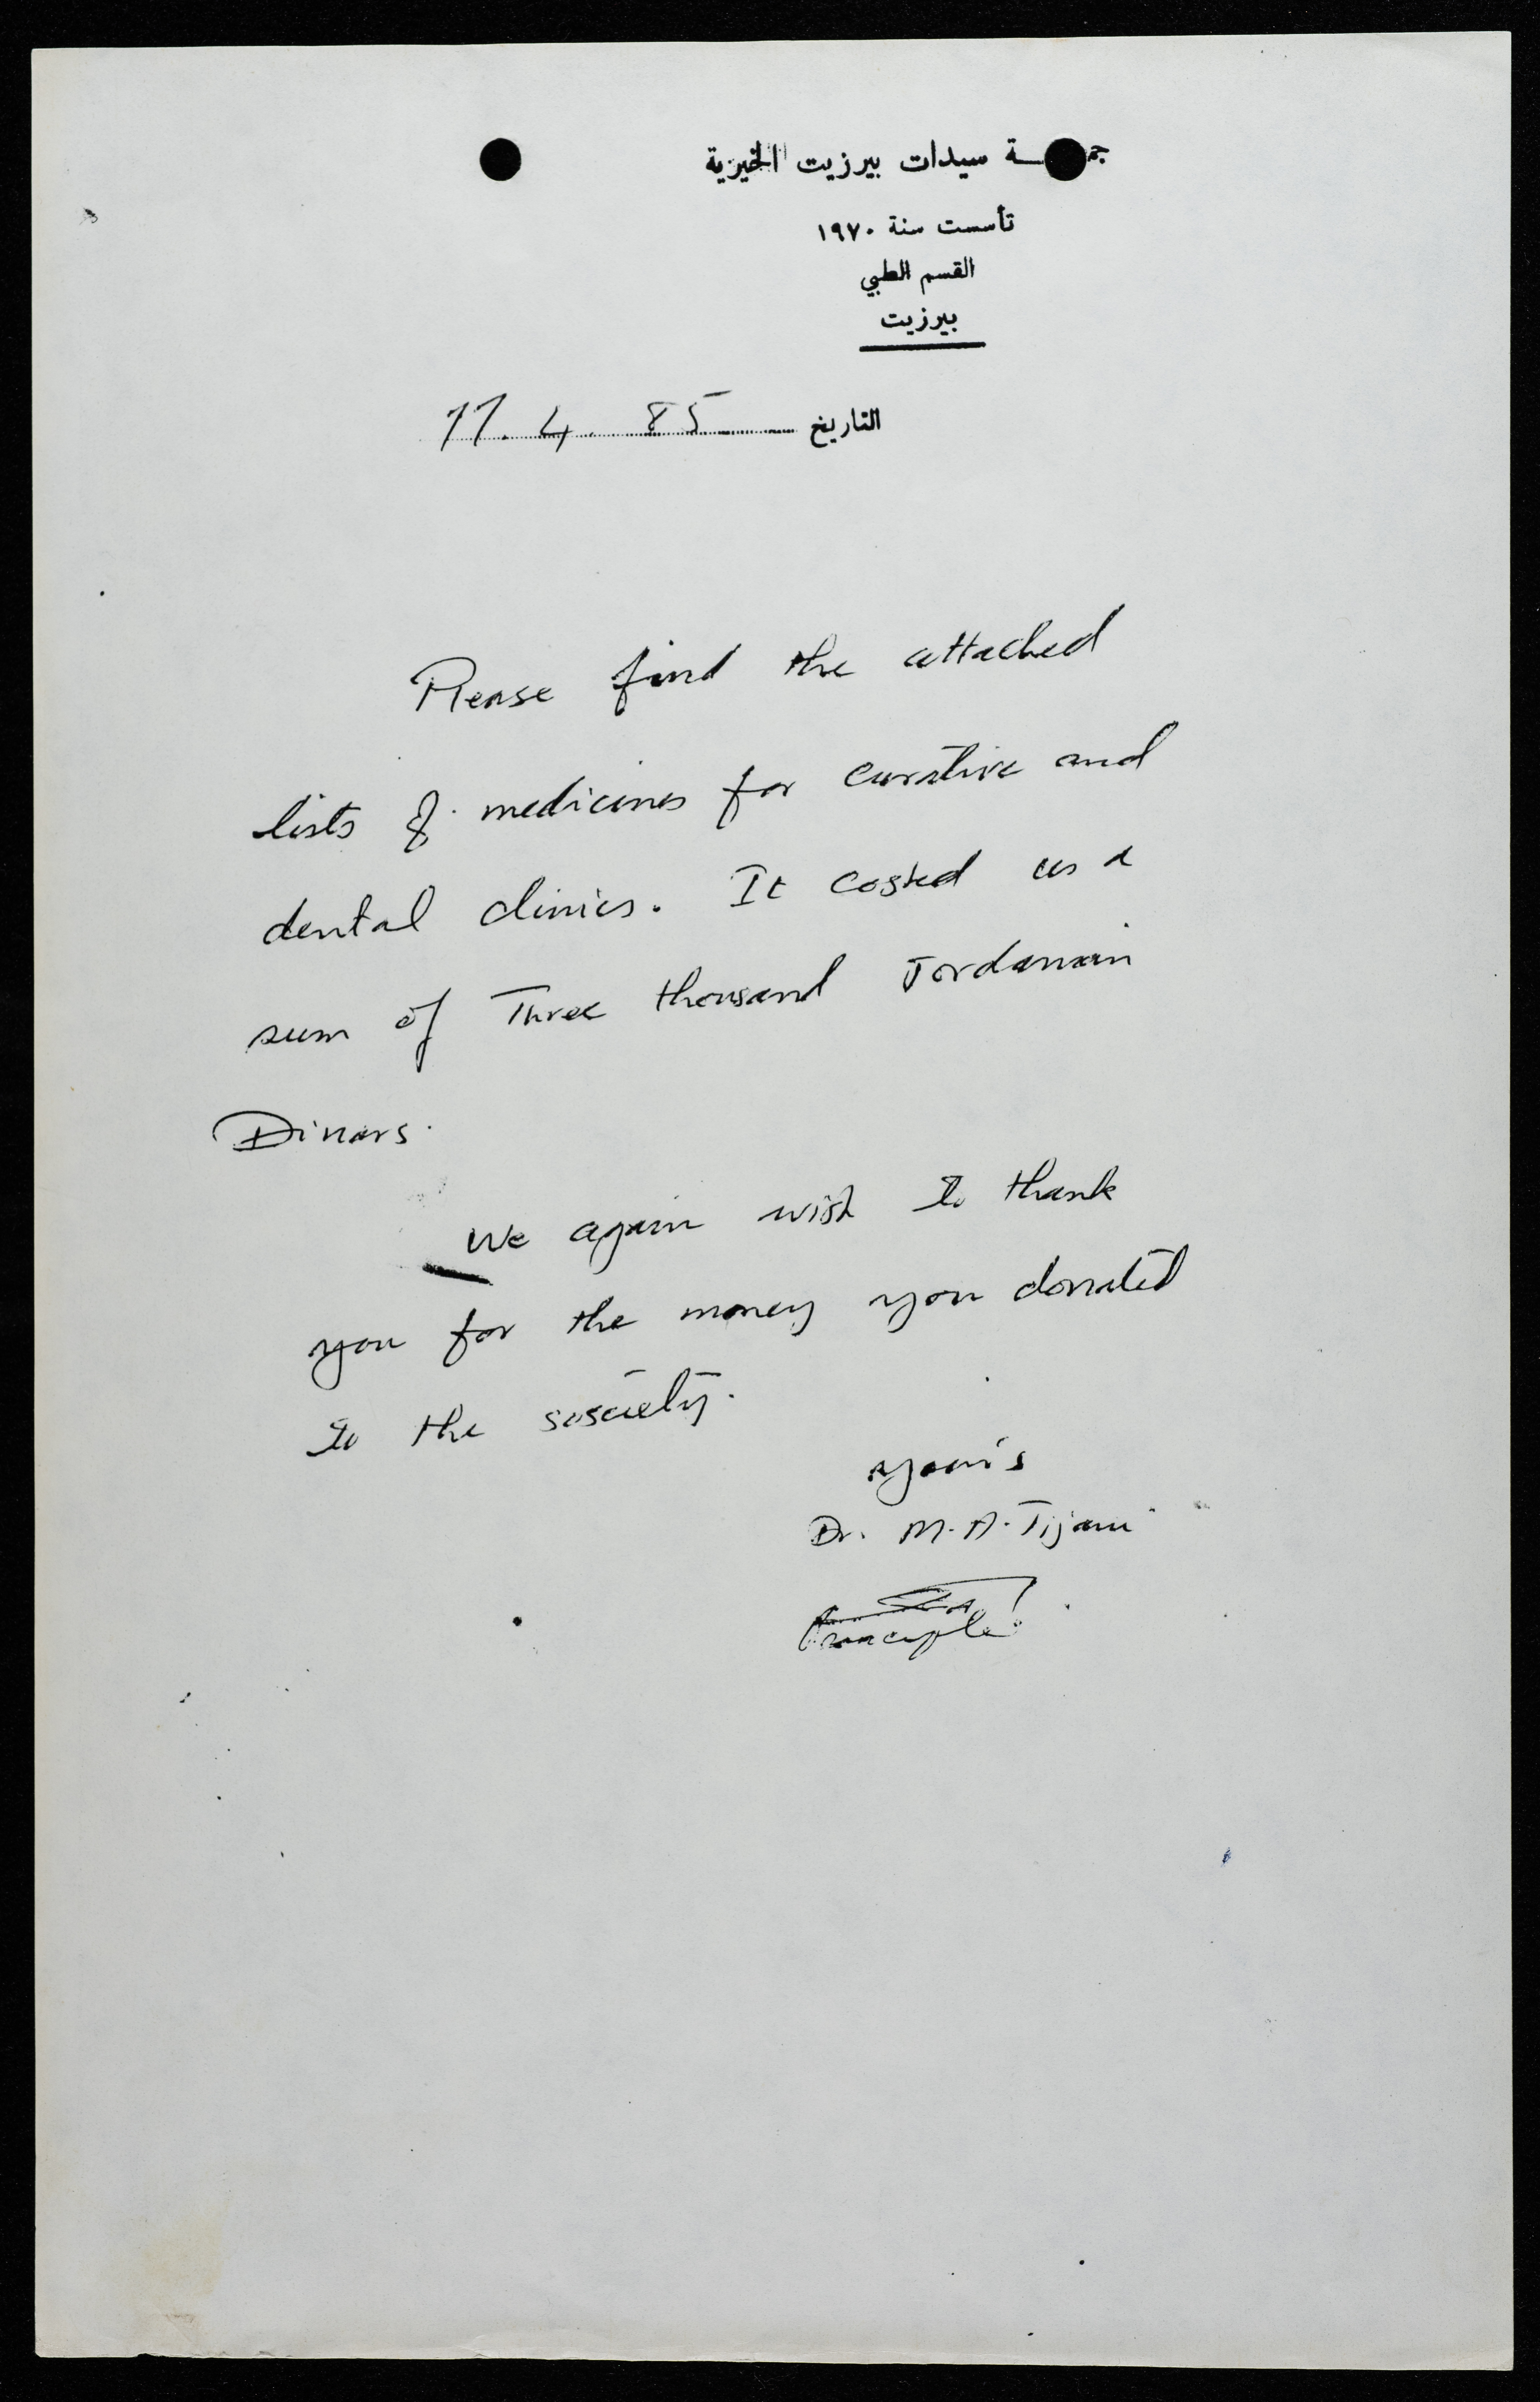 سيدات بيرزيت الخيرية
تأسست سنة ١٩٧٠
القسم الطبي
بيرزيت
التاريخ 11. 4. 85
Please find the attached
lists of medicines for curative and
dental clinics. It costed us a
sum of Three thousand Jordanain
Dinars.
We again wish to thank
you for the money you donated
to the sosciety.
your's
Dr. M.A. Tijani